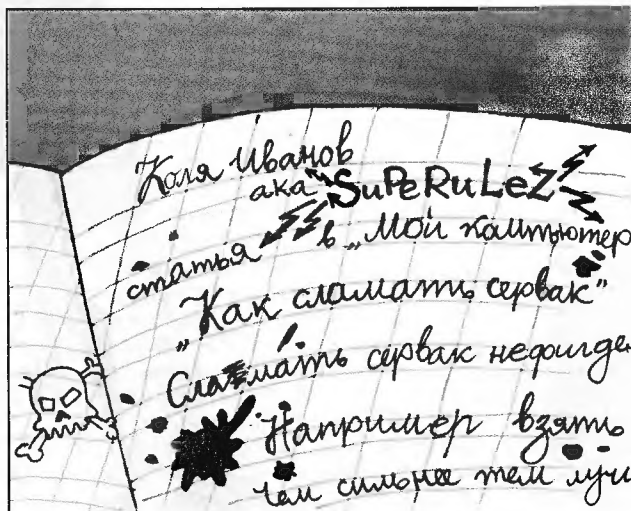 Коля Иванов
ака SuPeRuLeZ
статья в „Мой компютер
„Как сламать сервак“
Сламать сервак нефигде
Например взять
чем сильнее тем лучш